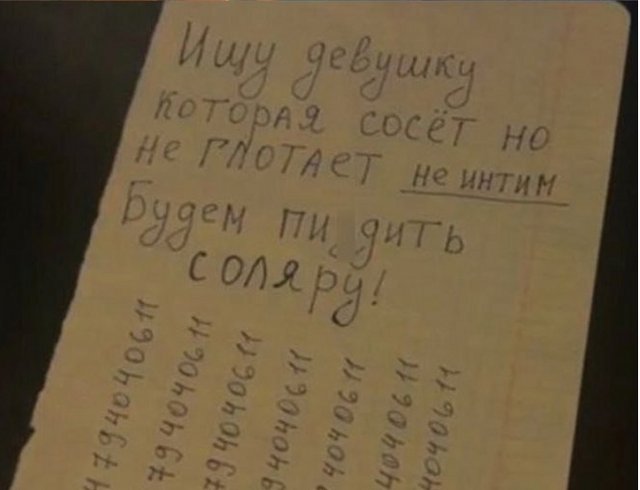 Ищу девушку
которая сосёт но
не глотает не интим
Будем пи дить
соляру!
4794040611
794040611
794040611
94040611
4040611
4040611
4040611